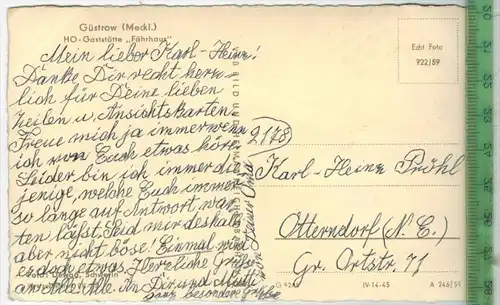 Güstrow (Meckl.)
HO-Gaststätte „Fährhaus"
Mein lieber Karl-Heinz!
Danke Dir recht herz-
lich für Deine lieben
Zeilen u. Ansichtskarten
Freue mich ja immer wenn
ich von Euch etwas höre.
Leider bin ich immer die
jenige, welche Euch immer
so lange auf Antwort war-
ten läßt. Seid mir deshalb
aber nicht böse! Einmal wird
es doch etwas. Herzliche Grüße
an Alle Alle. An Dir und Mutti
ganz besondere Grüße
von Deiner Oma
Echt Foto
922/59
2178
Karl-Heinz Pröhl
Otterndorf (N. E.)
Gr. Ortstr. 71
IV-14-45
A 246/59
BILD UND